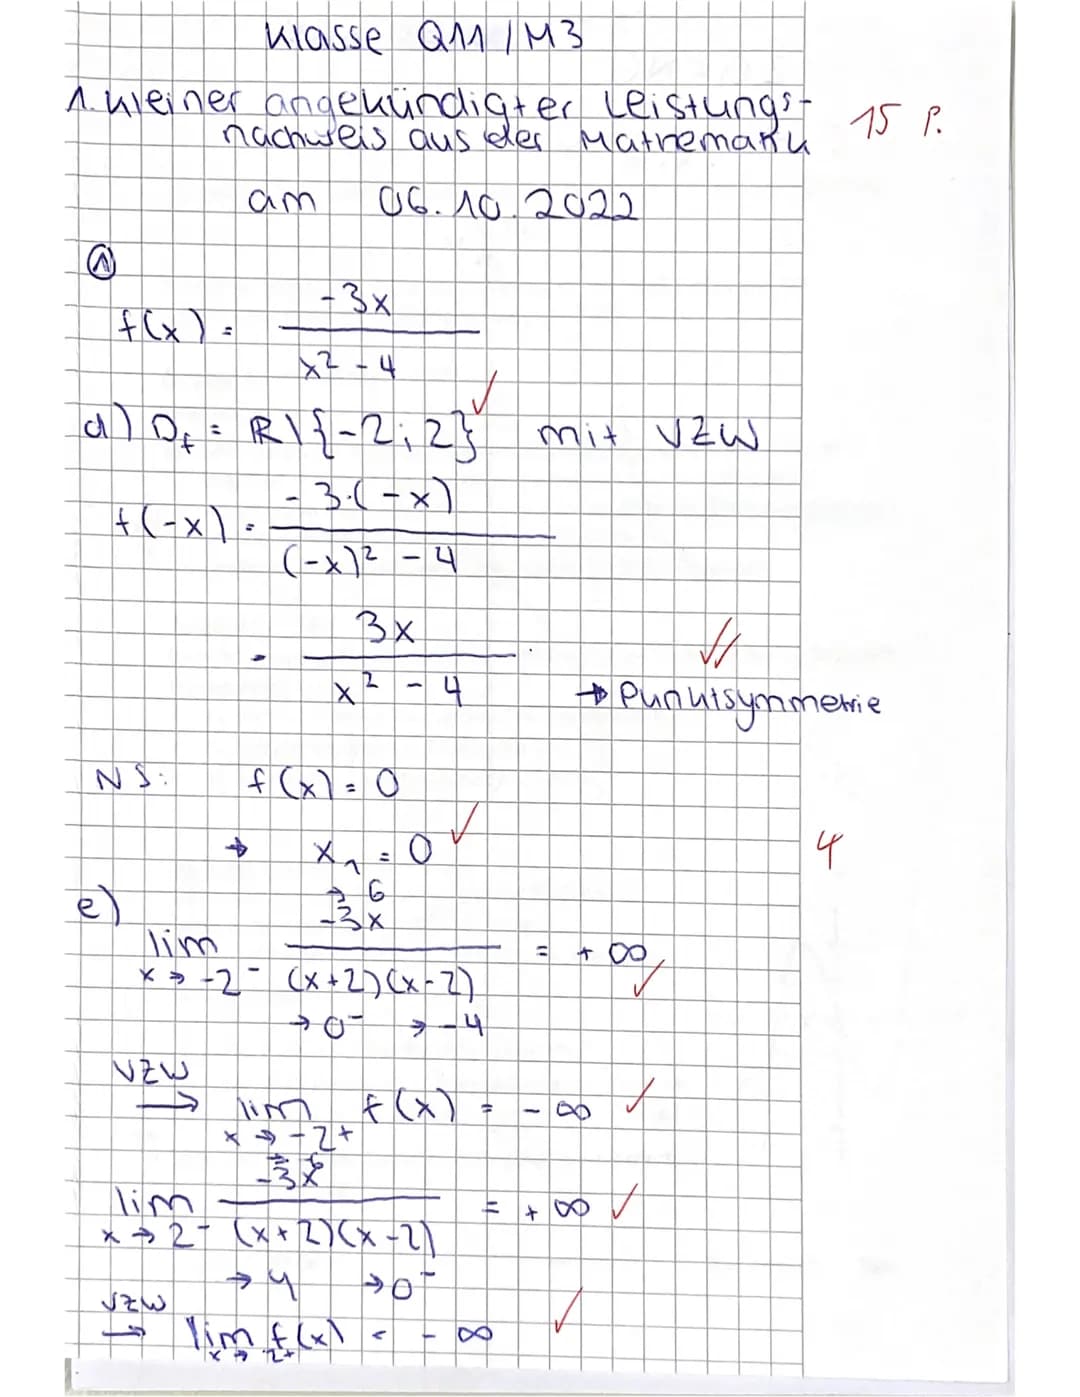 Klasse Q11/M3
1. kleiner angekündigter Leistungs-
nachweis aus der Mathematik
15 P.
am 06.10.2022
1
f(x) = -3x / x² - 4
d) D_f = ℝ\{-2; 2} ✓ mit VZW
f(-x) = -3·(-x) / (-x)² - 4
= 3x / x² - 4 → Punktsymmetrie ✓✓
NS: f(x) = 0
→ x₁ = 0 ✓
4
→ 6
e) lim x→-2⁻ -3x / (x+2)(x-2) = +∞ ✓
→ 0⁻ → -4
VZW
→ lim x→-2⁺ f(x) = -∞ ✓
lim x→2⁻ -3x / (x+2)(x-2) = +∞ ✓
→ 4 → 0⁻
VZW
→ lim x→2⁺ f(x) = -∞ ✓